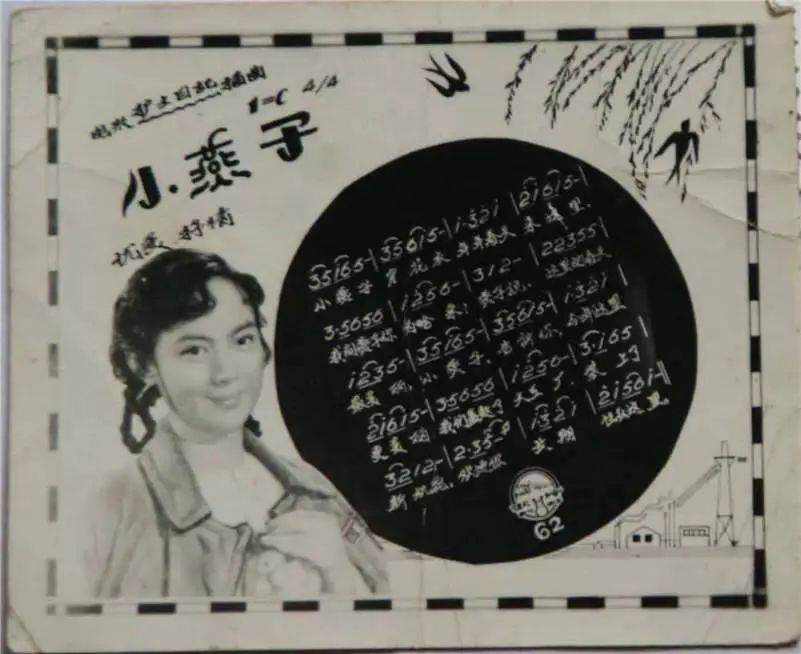 电影护士日记插曲
1=C 4/4
小燕子
优美 抒情
35165- | 35615- | i·32i | 21615- |
小燕子 穿花衣 年年春天 来这里。
3·5656 | i256- | 312- | 22355
我问燕子你 为啥来？ 燕子说， 这里的春天
i235- | 35165- | 35615- | i·32i |
最美丽。小燕子，告诉你，今年这里
21615- | 35656 | i256- | 3·165 |
更美丽 我们盖起了 大工厂，装上了
3212- | 2·35-0 | i321 | 21561- |
新机器，欢迎你 长期 住在这里。
62